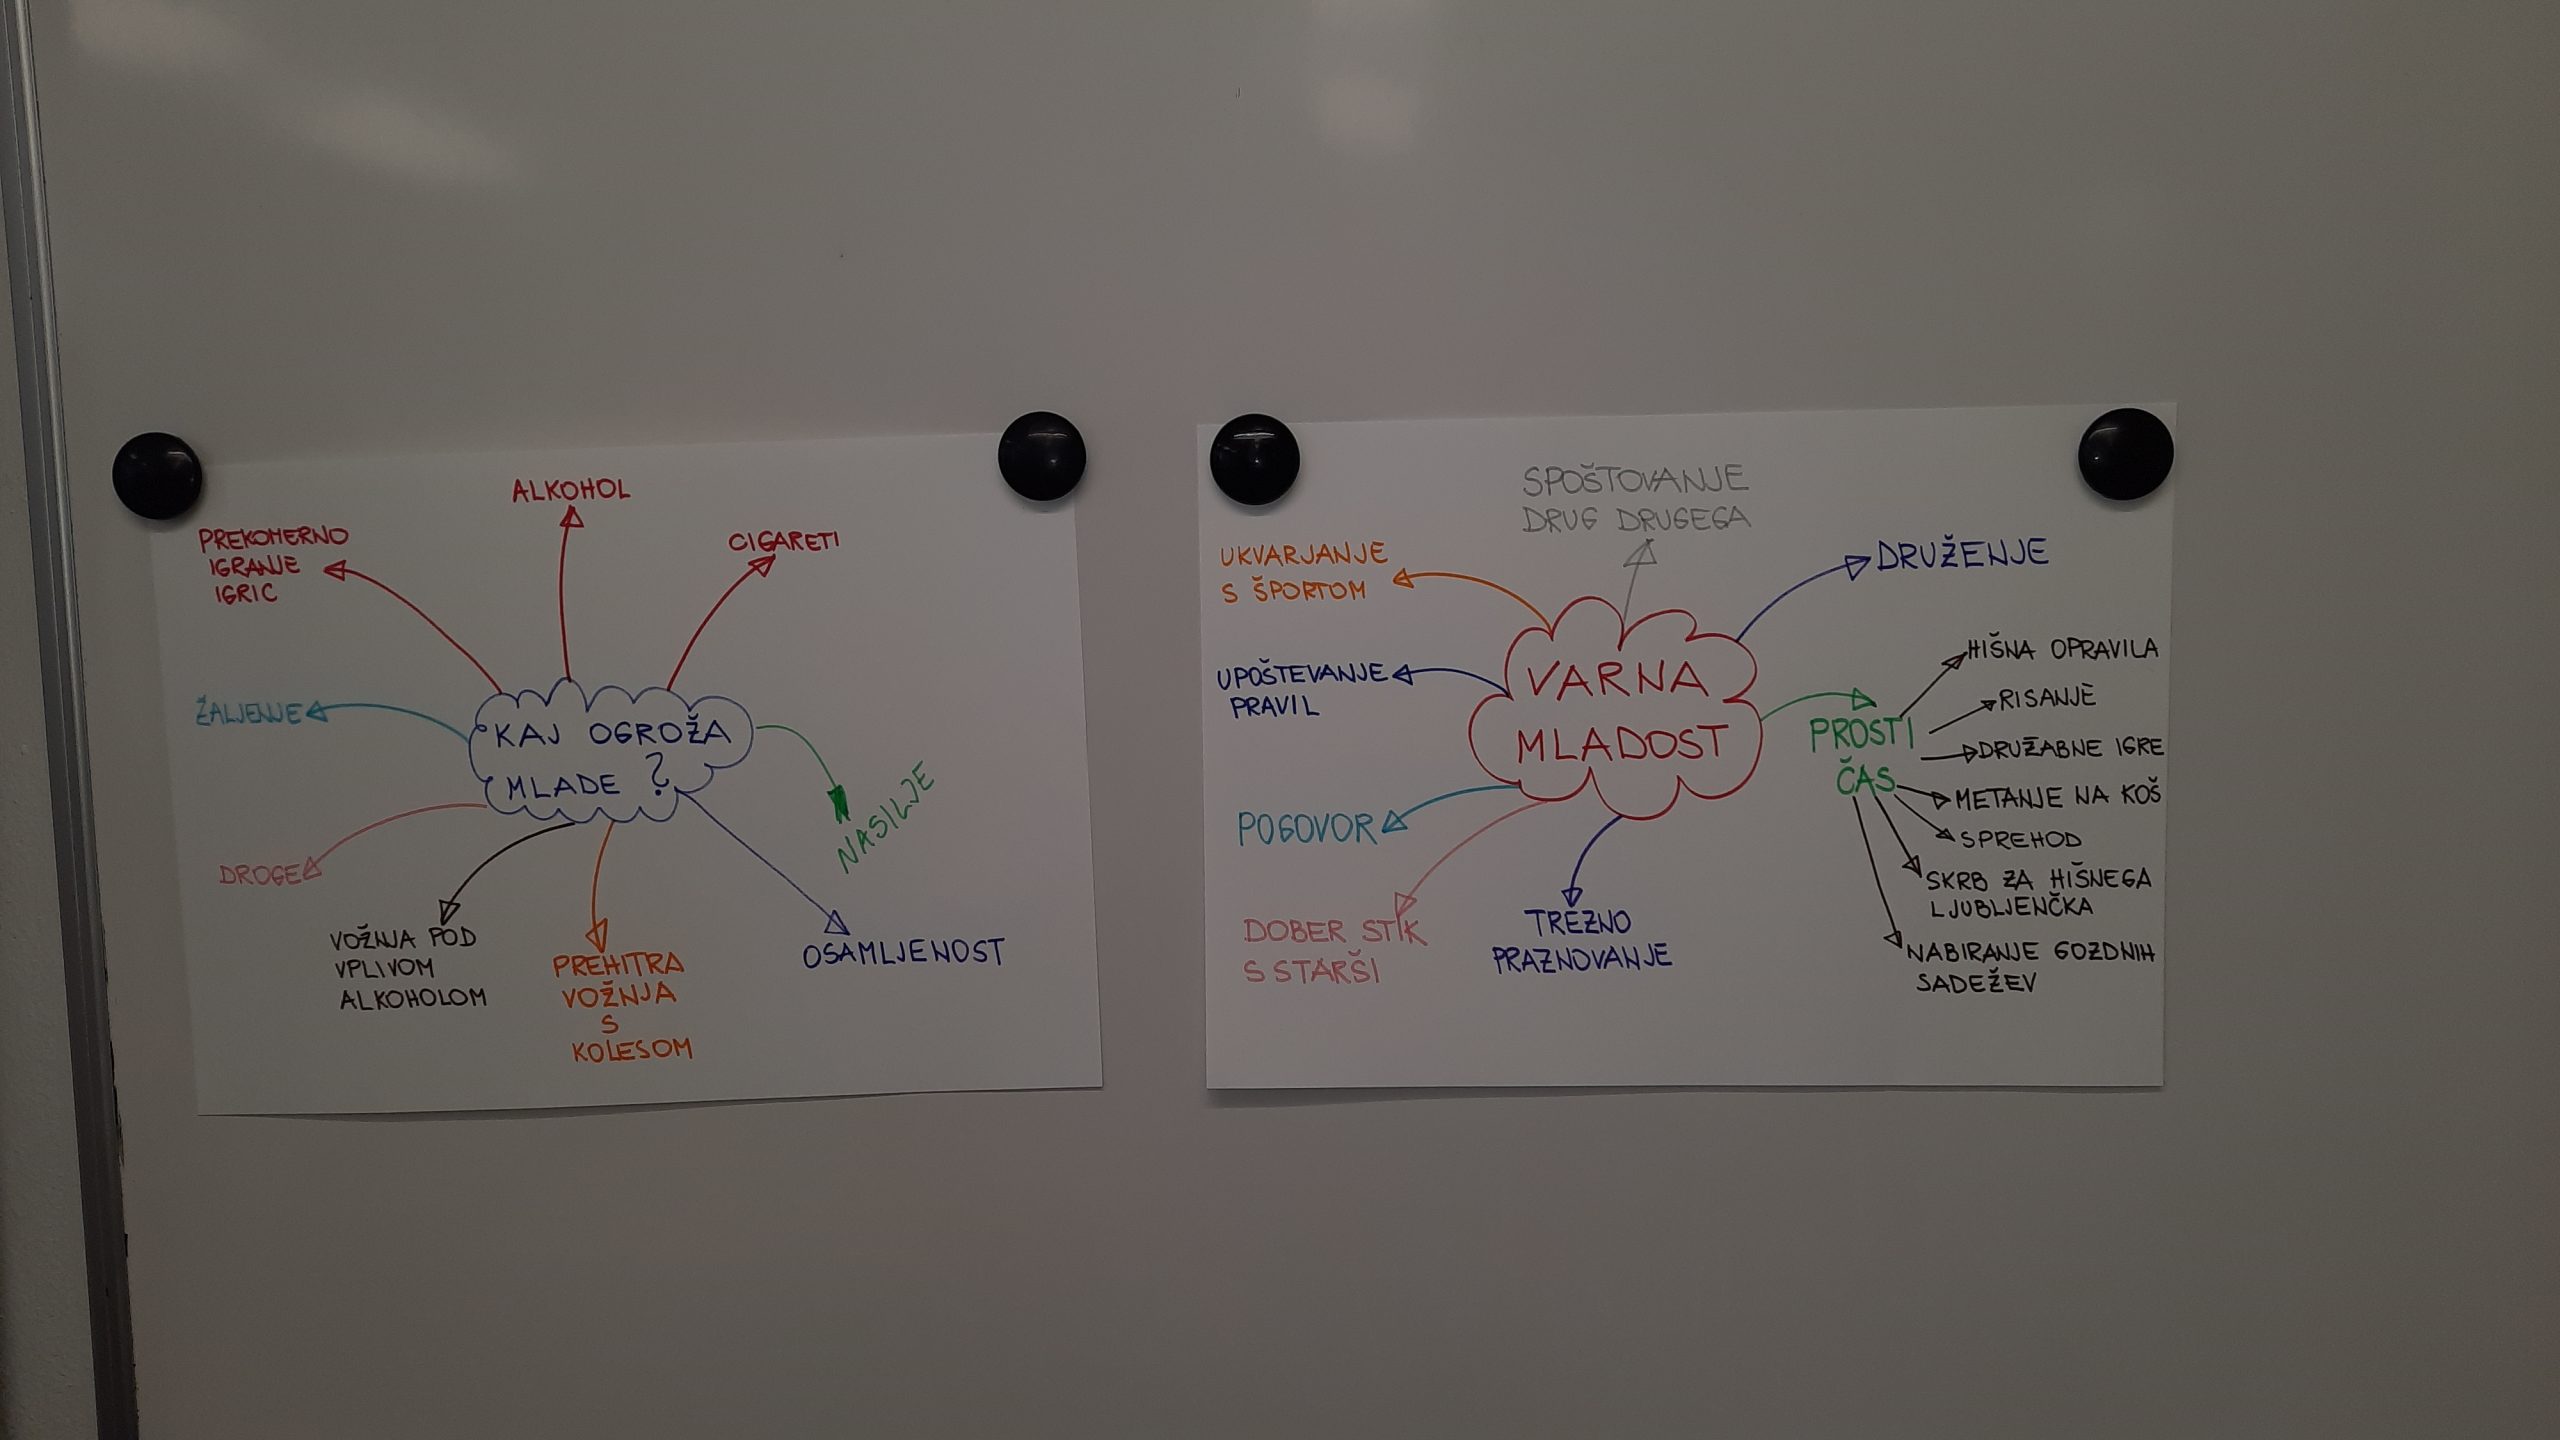 ALKOHOL
CIGARETI
PREKOMERNO
IGRANJE
IGRIC
ŽALJENJE
KAJ OGROŽA
MLADE ?
NASILJE
DROGE
VOŽNJA POD
VPLIVOM
ALKOHOLOM
PREHITRA
VOŽNJA
S
KOLESOM
OSAMLJENOST
SPOŠTOVANJE
DRUG DRUGEGA
UKVARJANJE
S ŠPORTOM
DRUŽENJE
UPOŠTEVANJE
PRAVIL
VARNA
MLADOST
PROSTI
ČAS
HIŠNA OPRAVILA
RISANJE
DRUŽABNE IGRE
METANJE NA KOŠ
SPREHOD
SKRB ZA HIŠNEGA
LJUBLJENČKA
NABIRANJE GOZDNIH
SADEŽEV
POGOVOR
DOBER STIK
S STARŠI
TREZNO
PRAZNOVANJE